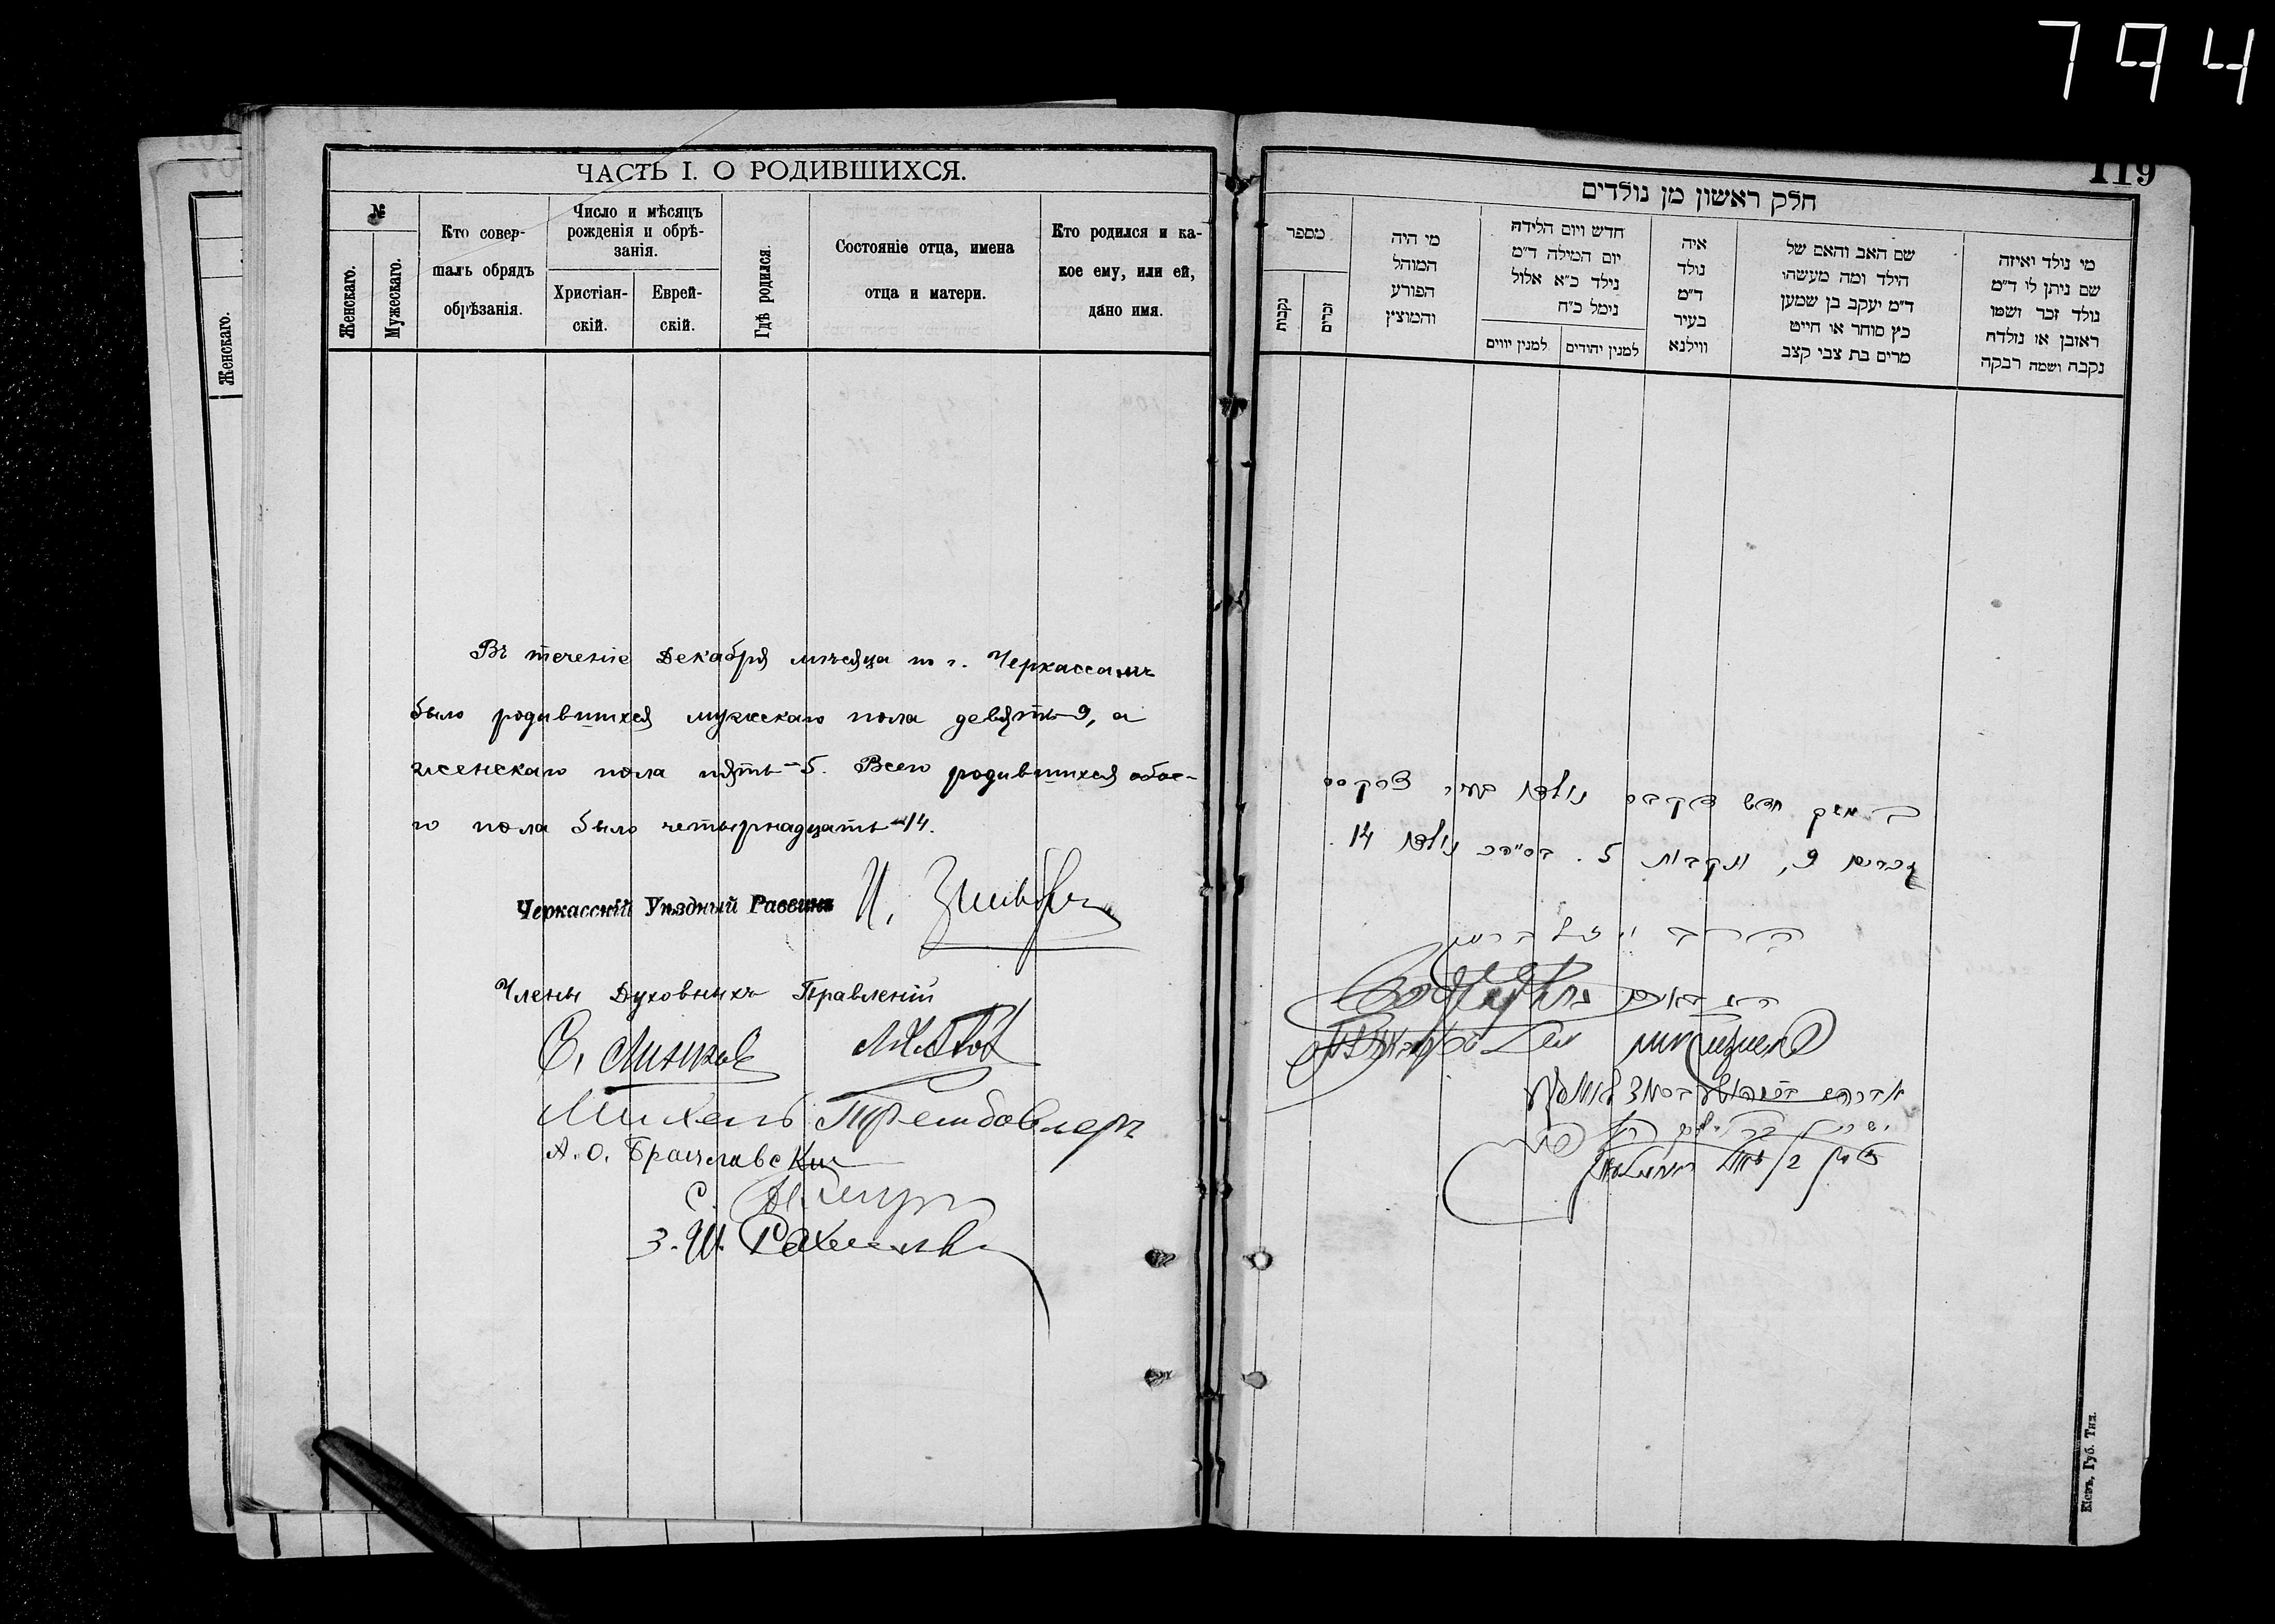 794
ЧАСТЬ I. О РОДИВШИХСЯ.
№
Женскаго.
Мужескаго.
Кто совер-
шалъ обрядъ
обрѣзанія.
Число и мѣсяцъ
рожденія и обрѣ-
занія.
Христіан-
скій.
Еврей-
скій.
Гдѣ родился.
Состояніе отца, имена
отца и матери.
Кто родился и ка-
кое ему, или ей,
дано имя.
Женскаго.
Въ теченіе Декабря мѣсяца по г. Черкассамъ
было родившихся мужескаго пола девять-9, а
женскаго пола пять-5. Всего родившихся обое-
го пола было четырнадцать-14.
Черкасскій Уѣздный Раввинъ И.
Члены Духовныхъ Правленій
Михель Трембовлеръ
А. О. Брацлавскій
С.
З. Ш.
119
חלק ראשון מן נולדים
מספר
נקבות
זכרים
מי היה
המוהל
הפורע
והמוצץ
חדש ויום הלידה
יום המילה ד״מ
נילד כ״א אלול
נימל כ״ח
למנין יווים
למנין יהודים
איה
נולד
ד״מ
בעיר
ווילנא
שם האב והאם של
הילד ומה מעשהו
ד״מ יעקב בן שמעון
כץ סוחר או חייט
מרים בת צבי קצב
מי נולד ואיזה
שם ניתן לי ד״מ
נולד זכר ושמו
ראובן או נולדה
נקבה ושמה רבקה
במשך חדש דקבר נולדו בעיר צרקס
זכרים 9, ונקבות 5. בס״הכ נולדו 14.
Кіевъ, Губ. Тип.